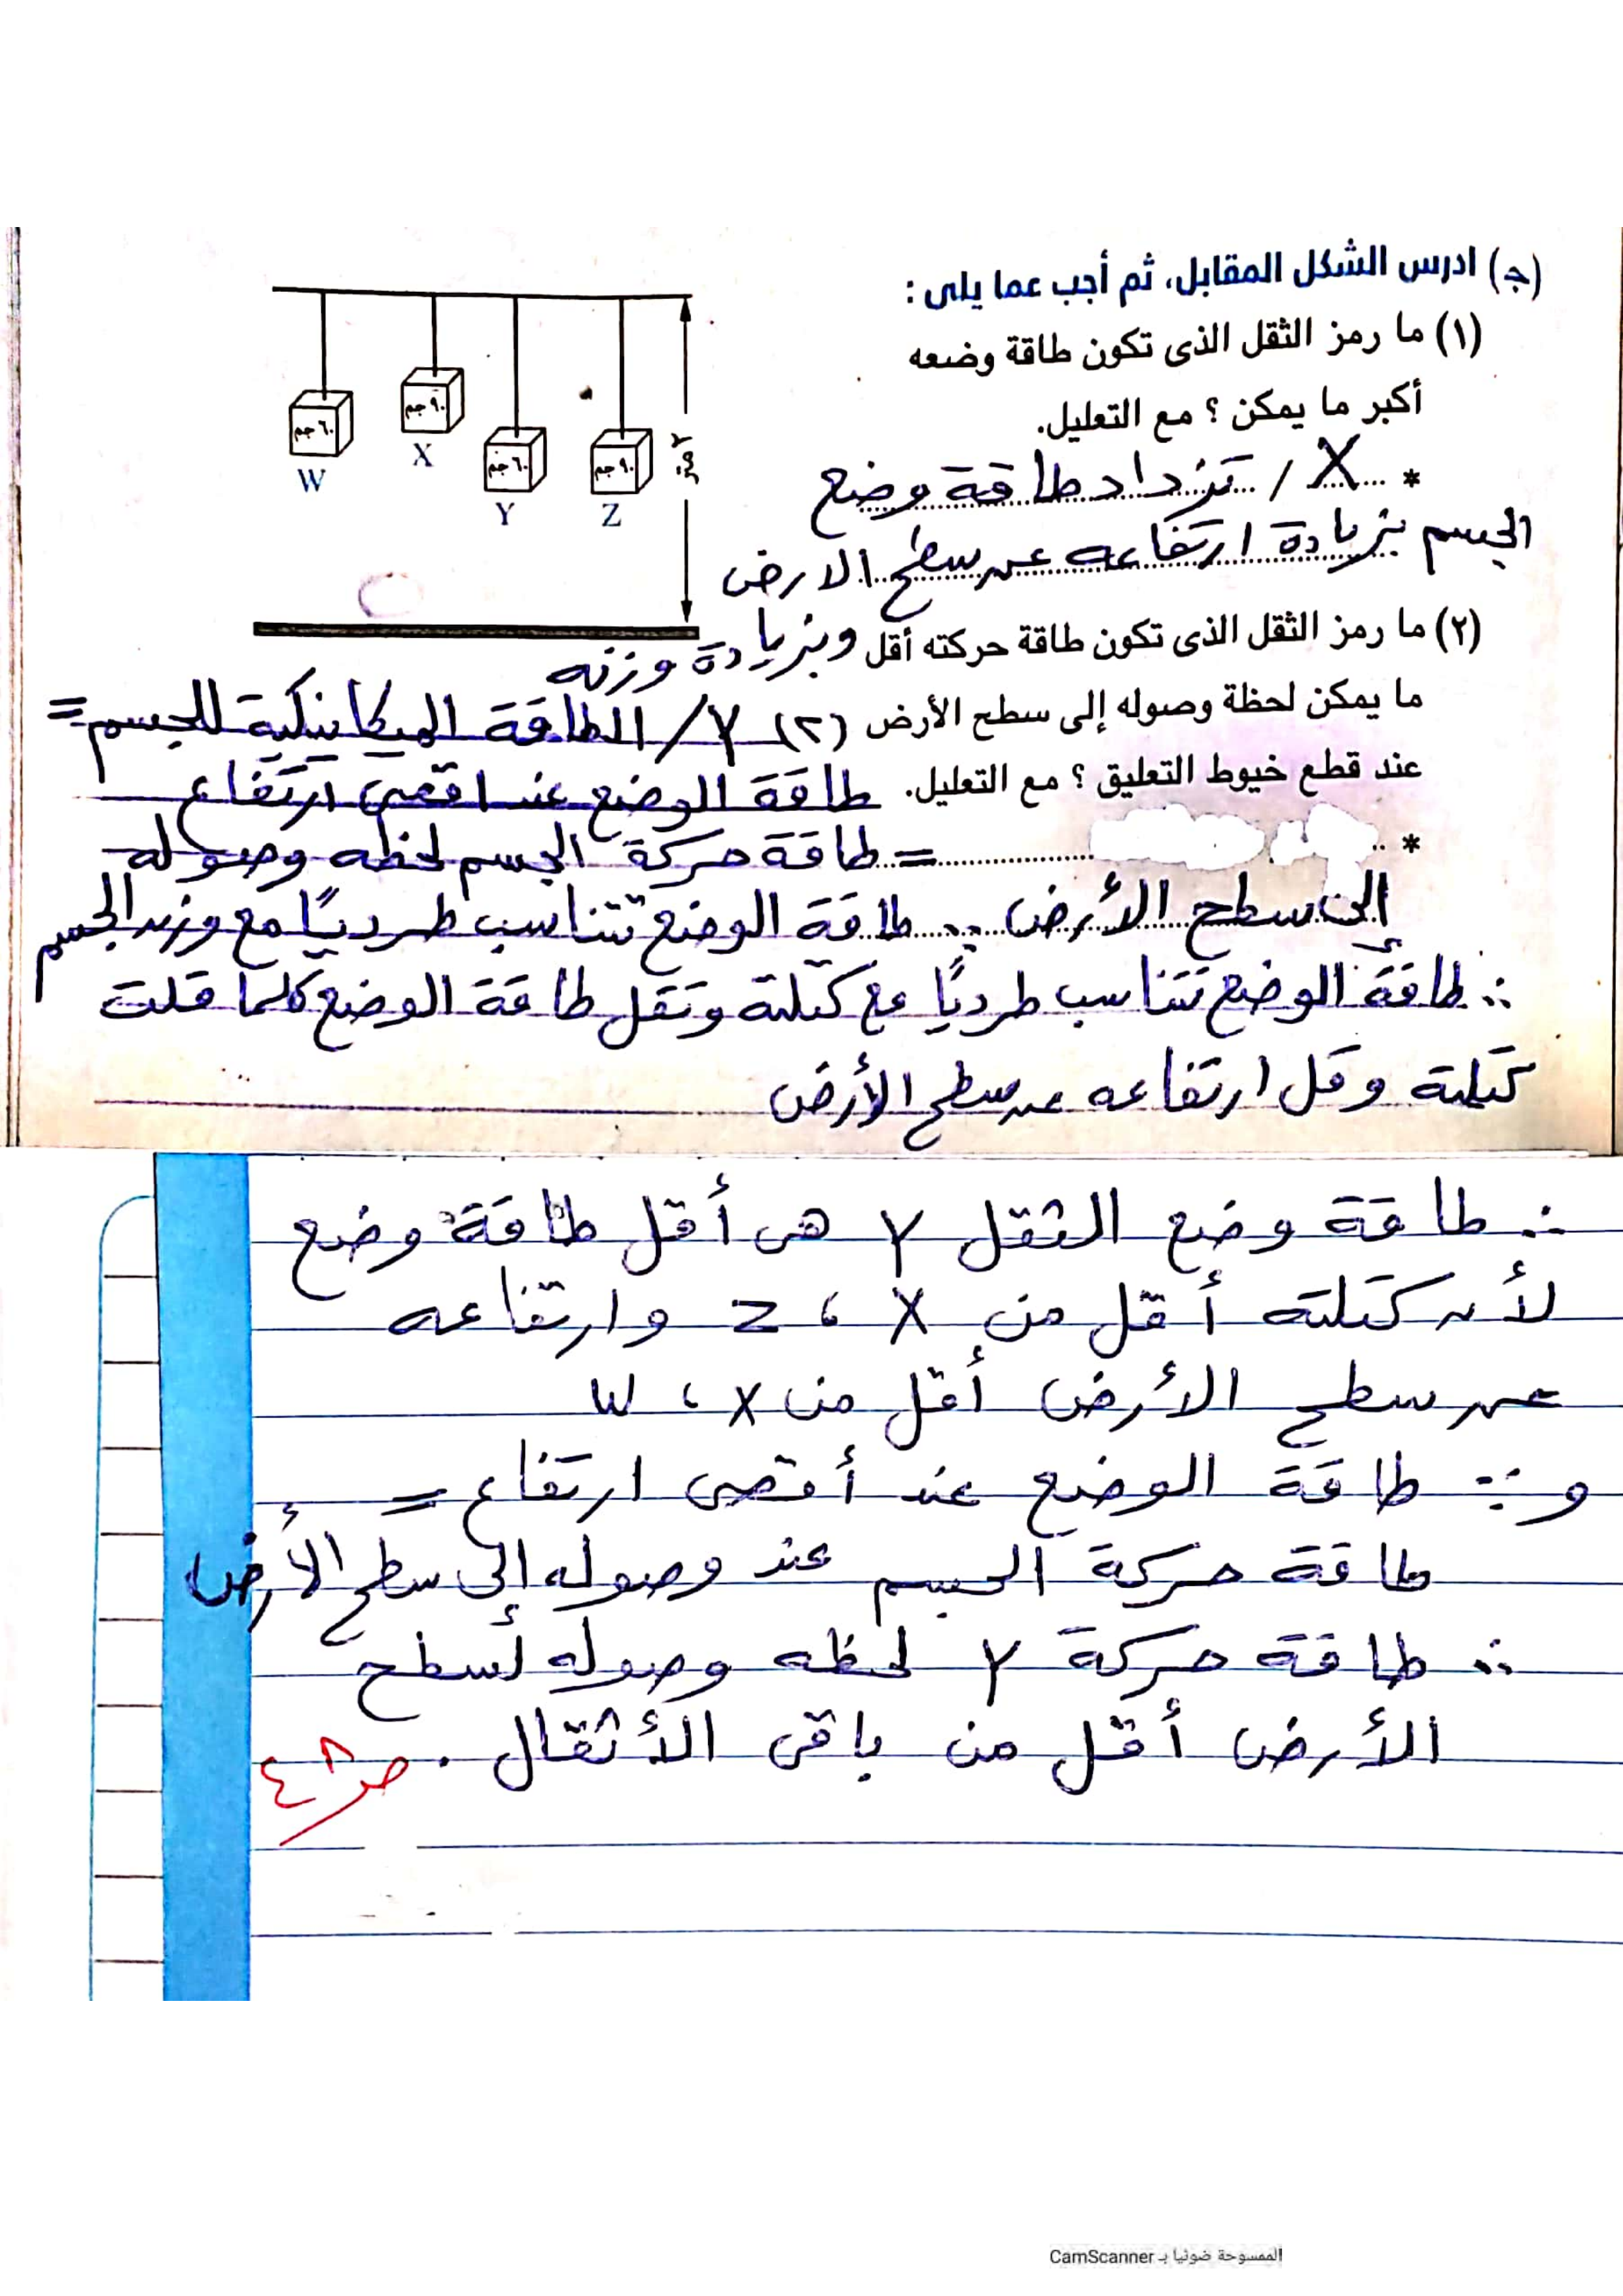 (جـ) ادرس الشكل المقابل، ثم أجب عما يلى :
(١) ما رمز الثقل الذى تكون طاقة وضعه
أكبر ما يمكن ؟ مع التعليل.
* X / تزداد طاقة وضع
الجسم بزيادة ارتفاعه عن سطح الارض
وبزيادة وزنه
٦٠ جم
٩٠ جم
٦٠ جم
٩٠ جم
W
X
Y
Z
٢ متر
(٢) ما رمز الثقل الذى تكون طاقة حركته أقل
ما يمكن لحظة وصوله إلى سطح الأرض
عند قطع خيوط التعليق ؟ مع التعليل.
(٢) Y / الطاقة الميكانيكية للجسم =
طاقة الوضع عند اقصى ارتفاع
* = طاقة حركة الجسم لحظه وصوله
إلى سطح الأرض ∵ طاقة الوضع تتناسب طرديًا مع وزن الجسم
∴ طاقة الوضع تتناسب طرديًا مع كتلته وتقل طاقة الوضع كلما قلت
كتلته وقل ارتفاعه عن سطح الأرض
∴ طاقة وضع الثقل Y هى أقل طاقة وضع
لأن كتلته أقل من X ، Z وارتفاعه
عن سطح الأرض أقل من X ، W
و ∵ طاقة الوضع عند أقصى ارتفاع =
طاقة حركة الجسم عند وصوله إلى سطح الأرض
∴ طاقة حركة Y لحظه وصوله لسطح
الأرض أقل من باقى الأثقال .
ص٤٨
الممسوحة ضوئيا بـ CamScanner